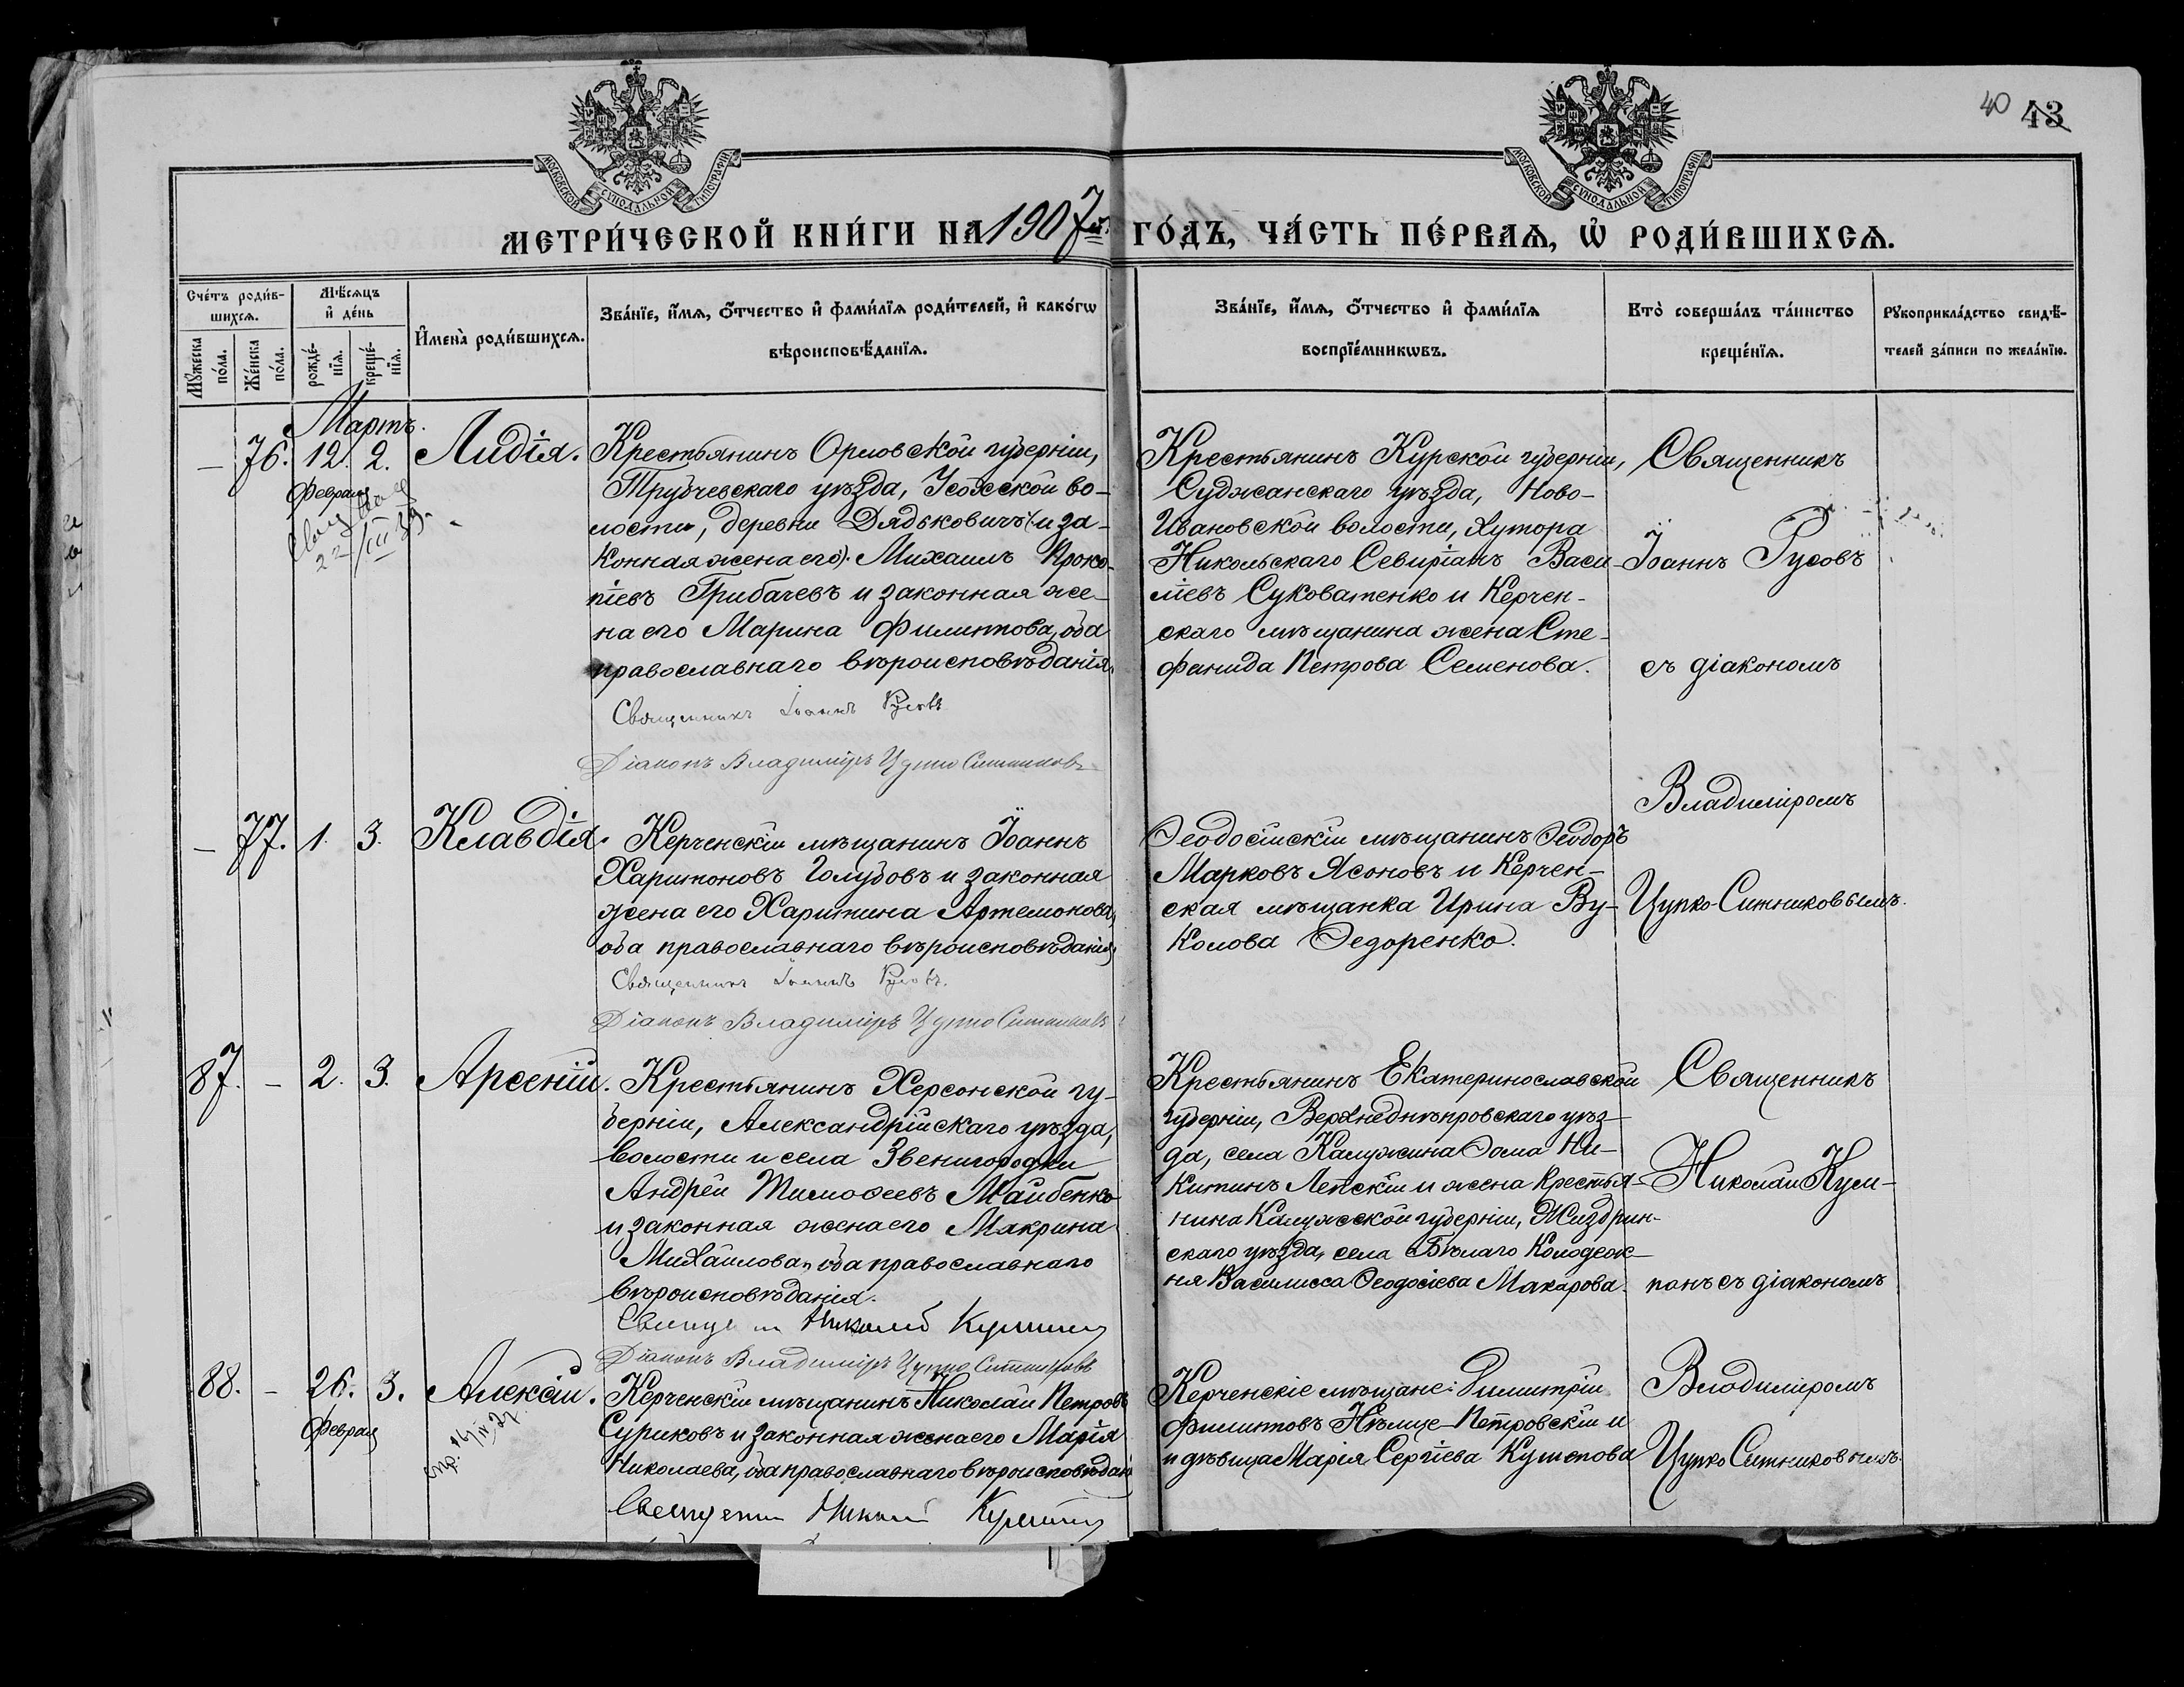 40 43
МОСКОВСКОЙ СѴНОДАЛЬНОЙ ТИПОГРАФІИ
МОСКОВСКОЙ СѴНОДАЛЬНОЙ ТИПОГРАФІИ
МЕТРИ́ЧЕСКОЙ КНИ́ГИ НА 1907й. ГО́ДЪ, ЧА́СТЬ ПЕ́РВАѦ, Ѡ҆ РОДИ́ВШИХСѦ.
Сче́тъ роди́в-
шихсѧ.
Мꙋ́жеска по́ла.
Же́нска по́ла.
Мѣ́сѧцъ
и҆ де́нь
рожде́-
нїѧ.
креще́-
нїѧ.
И҆мена̀ роди́вшихсѧ.
Зва́нїе, и҆́мѧ, ѻ҆́тчество и҆ фами́лїѧ роди́телей, и҆ како́гѡ
вѣроисповѣ́данїѧ.
Зва́нїе, и҆́мѧ, ѻ҆́тчество и҆ фами́лїѧ
воспрїе́мникѡвъ.
Кто̀ соверша́лъ та́инство
креще́нїѧ.
Рꙋкоприкла́дство свидѣ́-
телей за́писи по жела́нїю.
Мартъ.
— 76. 12. 2. Лидія.
Февраля
22/III 39.
Крестьянинъ Орловской губерніи,
Трубчевскаго уѣзда, Усожской во-
лости, деревни Дядьковичъ (и за-
конная жена его). Михаилъ Проко-
піевъ Грибачевъ и законная же-
на его Марина Филиппова, оба
православнаго вѣроисповѣданія.
Священникъ Іоаннъ Русовъ
Діаконъ Владиміръ Цупко Ситниковъ
Крестьянинъ Курской губерніи,
Суджанскаго уѣзда, Ново-
Ивановской волости, хутора
Никольскаго Севиріанъ Васи-
ліевъ Суковатенко и Керчен-
скаго мѣщанина жена Сте-
фанида Петрова Семенова.
Священникъ
Іоаннъ Русовъ
съ діакономъ
Владиміромъ
Цупко Ситниковымъ.
— 77. 1. 3. Клавдія.
Керченскій мѣщанинъ Іоаннъ
Харитоновъ Голубовъ и законная
жена его Харитина Артемонова,
оба православнаго вѣроисповѣданія.
Священникъ Іоаннъ Русовъ.
Діаконъ Владиміръ Цупко Ситниковъ
Ѳеодосійскій мѣщанинъ Ѳеодоръ
Марковъ Ясоновъ и Керчен-
ская мѣщанка Ирина Ву-
колова Ѳедоренко.
87. — 2. 3. Арсеній.
Крестьянинъ Херсонской гу-
берніи, Александрійскаго уѣзда,
волости и села Звенигородки
Андрей Тимоѳеевъ Майбенко
и законная жена его Макрина
Михайлова, оба православнаго
вѣроисповѣданія.
Николай
Діаконъ Владиміръ Цупко Ситниковъ
Крестьянинъ Екатеринославской
губерніи, Верхнеднѣпровскаго уѣз-
да, села Калужина Ѳома Ни-
китинъ Лепскій и жена крестья-
нина Калужской губерніи, Жиздрин-
скаго уѣзда, села Бѣлаго Колодез-
ня Василисса Ѳеодосіева Макарова.
Священникъ
Николай Кум-
панъ съ діакономъ
Владиміромъ
Цупко Ситниковымъ.
88. — 26. 3. Алексій.
Февраля
Керченскій мѣщанинъ Николай Петровъ
Суриковъ и законная жена его Марія
Николаева, оба православнаго вѣроисповѣдан
Николай
Керченскіе мѣщане: Димитрій
Филипповъ Нѣмце-Петровскій и
и дѣвица Марія Сергіева Кушепова